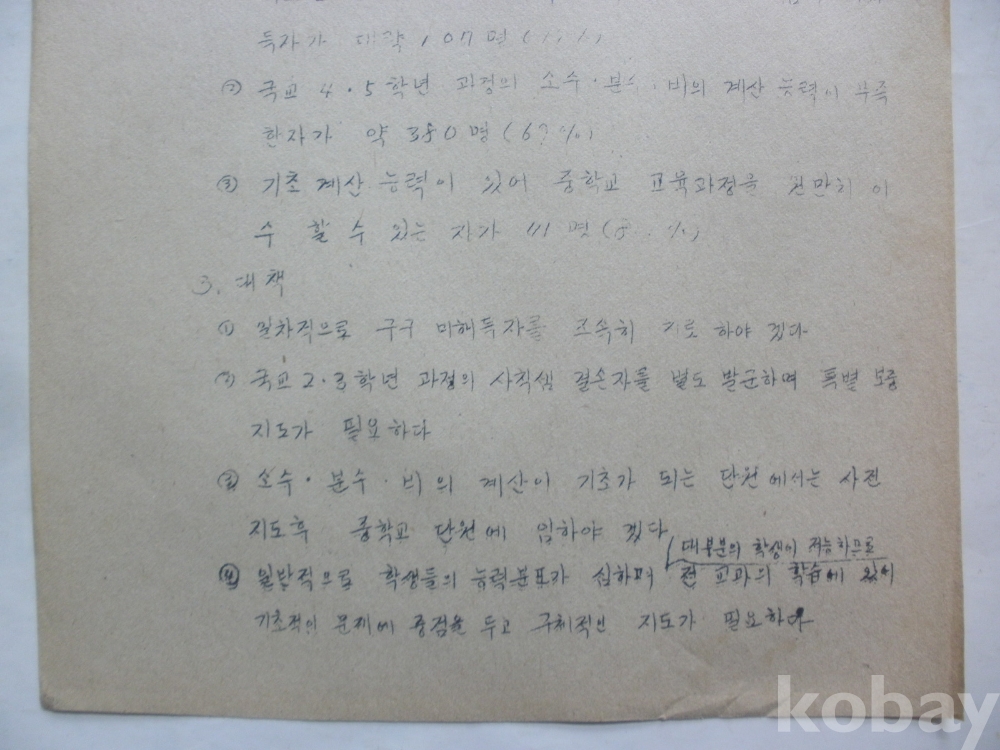 득자가 대략 107명 (
② 국교 4·5학년 과정의 소수·분수·비의 계산 능력이 부족
환자가 약 380명 (6 %)
③ 기초 계산 능력이 있어 중학교 교육과정을 원만히 이
수 할 수 있는 자가 111명 ( %)
3. 대책
① 일차적으로 구구 미해득자를 조속히 지도 하야 겠다
② 국교 2·3학년 과정의 사칙셈 결손자를 별도 발군하며 특별 보충
지도가 필요하다
③ 소수·분수·비의 계산이 기초가 되는 단원에서는 사전
지도후 중학교 단원에 임하야 겠다
대부분의 학생이 저능하므로
④ 일반적으로 학생들의 능력분포가 심하며 전 교과의 학습에 있어
기초적인 문제에 중점을 두고 구체적인 지도가 필요하다
kobay